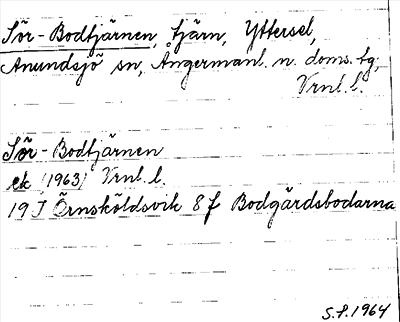 Sör-Bodtjärnen, tjärn, Yttersel,
Anundsjö sn, Ångermanl. n. doms. tg;
Vrnl. l.
Sör-Bodtjärnen
ek (1963) Vrnl. l.
19 J Örnsköldsvik 8 f Bodgårdsbodarna
S.P. 1964